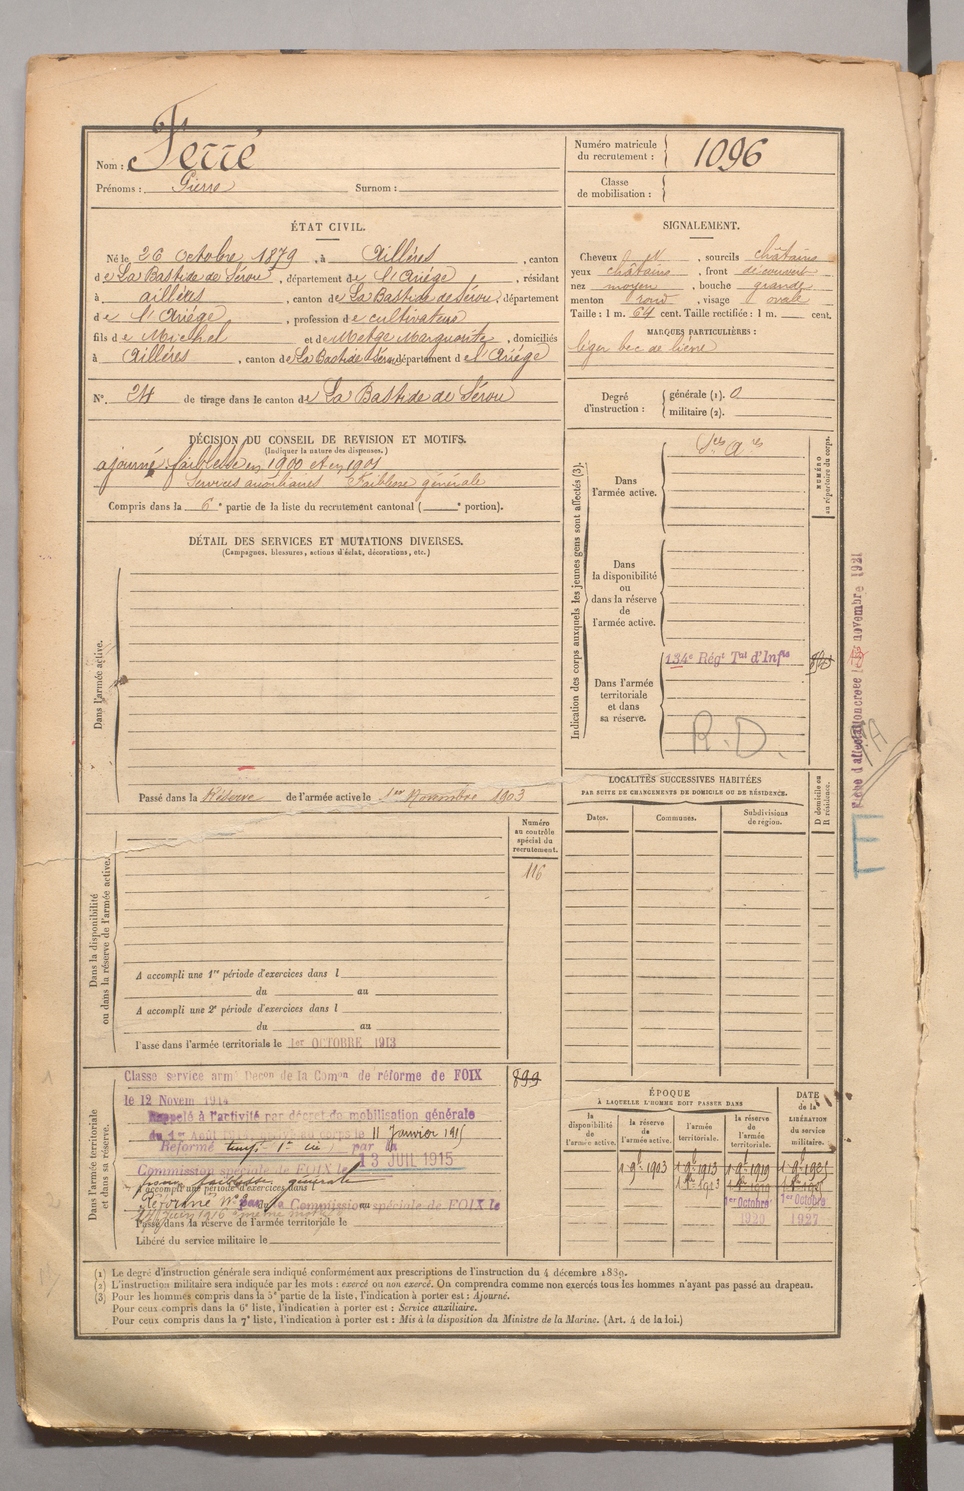 Nom : Ferré
Prénoms : Pierre Surnom :
Numéro matricule du recrutement : 1096
Classe de mobilisation :
ÉTAT CIVIL.
Né le 26 octobre 1879, à Aillères, canton
de La Bastide de Sérou, département de l'Ariége, résidant
à aillères, canton de La Bastide de Sérou, département
de l'Ariége, profession de cultivateur
fils de Michel et de Metge Marguerite, domiciliés
à Aillères, canton de La Bastide Sérou département de l'Ariége
N° 24 de tirage dans le canton de La Bastide de Sérou
SIGNALEMENT.
Cheveux , sourcils châtains
yeux châtains, front découvert
nez moyen, bouche grande
menton rond, visage ovale
Taille : 1 m. 64 cent. Taille rectifiée : 1 m. cent.
MARQUES PARTICULIÈRES :
léger bec de lièvre
Degré d'instruction : générale (1). 0
militaire (2).
DÉCISION DU CONSEIL DE REVISION ET MOTIFS.
(Indiquer la nature des dispenses.)
ajourné : faiblesse en 1900 et en 1901
Services auxiliaires Faiblesse générale
Compris dans la 6e partie de la liste du recrutement cantonal ( e portion).
DÉTAIL DES SERVICES ET MUTATIONS DIVERSES.
(Campagnes, blessures, actions d'éclat, décorations, etc.)
Dans l'armée active.
Passé dans la Réserve de l'armée active le 1er Novembre 1903
Indication des corps auxquels les jeunes gens sont affectés (3).
NUMÉRO au répertoire du corps.
Dans l'armée active.
Dans la disponibilité ou dans la réserve de l'armée active.
Dans l'armée territoriale et dans sa réserve.
134e Régt Tal d'Infie
R.D.
Pièce d'affectation créée le novembre 1921
LOCALITÉS SUCCESSIVES HABITÉES
PAR SUITE DE CHANGEMENTS DE DOMICILE OU DE RÉSIDENCE.
Dates. Communes. Subdivisions de région. D domicile ou R résidence.
Numéro au contrôle spécial du recrutement.
116
Dans la disponibilité ou dans la réserve de l'armée active.
A accompli une 1re période d'exercices dans l
du au
A accompli une 2e période d'exercices dans l
du au
Passé dans l'armée territoriale le 1er OCTOBRE 1913
Dans l'armée territoriale et dans sa réserve.
Classé service armé Décon de la Comon de réforme de FOIX
899
le 12 Novem 1914
Rappelé à l'activité par décret de mobilisation générale
du 1er Août corps le 11 Janvier 1915
Réformé temps 1e cie par la
Commission spéciale de FOIX le 13 JUIL 1915
pour faiblesse générale
A accompli une période d'exercices dans l
Réformé N° 2 par la Commission spéciale de FOIX le
Juin 1916
Passé dans la réserve de l'armée territoriale le
Libéré du service militaire le
ÉPOQUE
À LAQUELLE L'HOMME DOIT PASSER DANS
la disponibilité de l'armée active. la réserve de l'armée active. l'armée territoriale. la réserve de l'armée territoriale.
DATE de la LIBÉRATION du service militaire.
1 9b 1903 1 9b 1913 1 9b 1919
1er Octobre 1920 1er Octobre 1927
(1) Le degré d'instruction générale sera indiqué conformément aux prescriptions de l'instruction du 4 décembre 1889.
(2) L'instruction militaire sera indiquée par les mots : exercé ou non exercé. On comprendra comme non exercés tous les hommes n'ayant pas passé au drapeau.
(3) Pour les hommes compris dans la 5e partie de la liste, l'indication à porter est : Ajourné.
Pour ceux compris dans la 6e liste, l'indication à porter est : Service auxiliaire.
Pour ceux compris dans la 7e liste, l'indication à porter est : Mis à la disposition du Ministre de la Marine. (Art. 4 de la loi.)